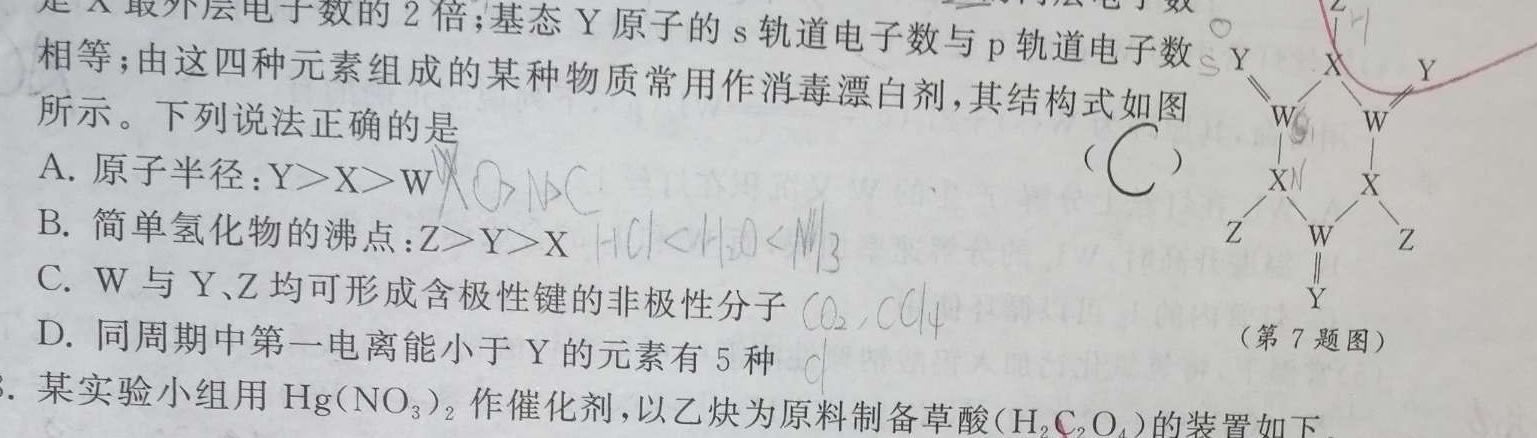 是 X 最外层电子数的 2 倍;基态 Y 原子的 s 轨道电子数与 p 轨道电子数
相等;由这四种元素组成的某种物质常用作消毒漂白剂,其结构式如图
所示。下列说法正确的是 ( C )
A. 原子半径:Y>X>W O>N>C
B. 简单氢化物的沸点:Z>Y>X HCl<H₂O<NH₃
C. W 与 Y、Z 均可形成含极性键的非极性分子 CO₂, CCl₄
D. 同周期中第一电离能小于 Y 的元素有 5 种
Z
Y X Y
W W
X N X
Z W Z
Y
(第 7 题图)
. 某实验小组用 Hg(NO₃)₂ 作催化剂,以乙炔为原料制备草酸(H₂C₂O₄)的装置如下